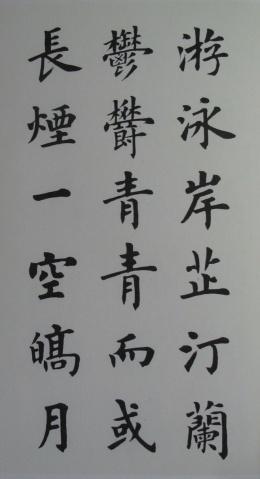 游泳岸芷汀蘭
鬱欝青青而或
長煙一空皜月